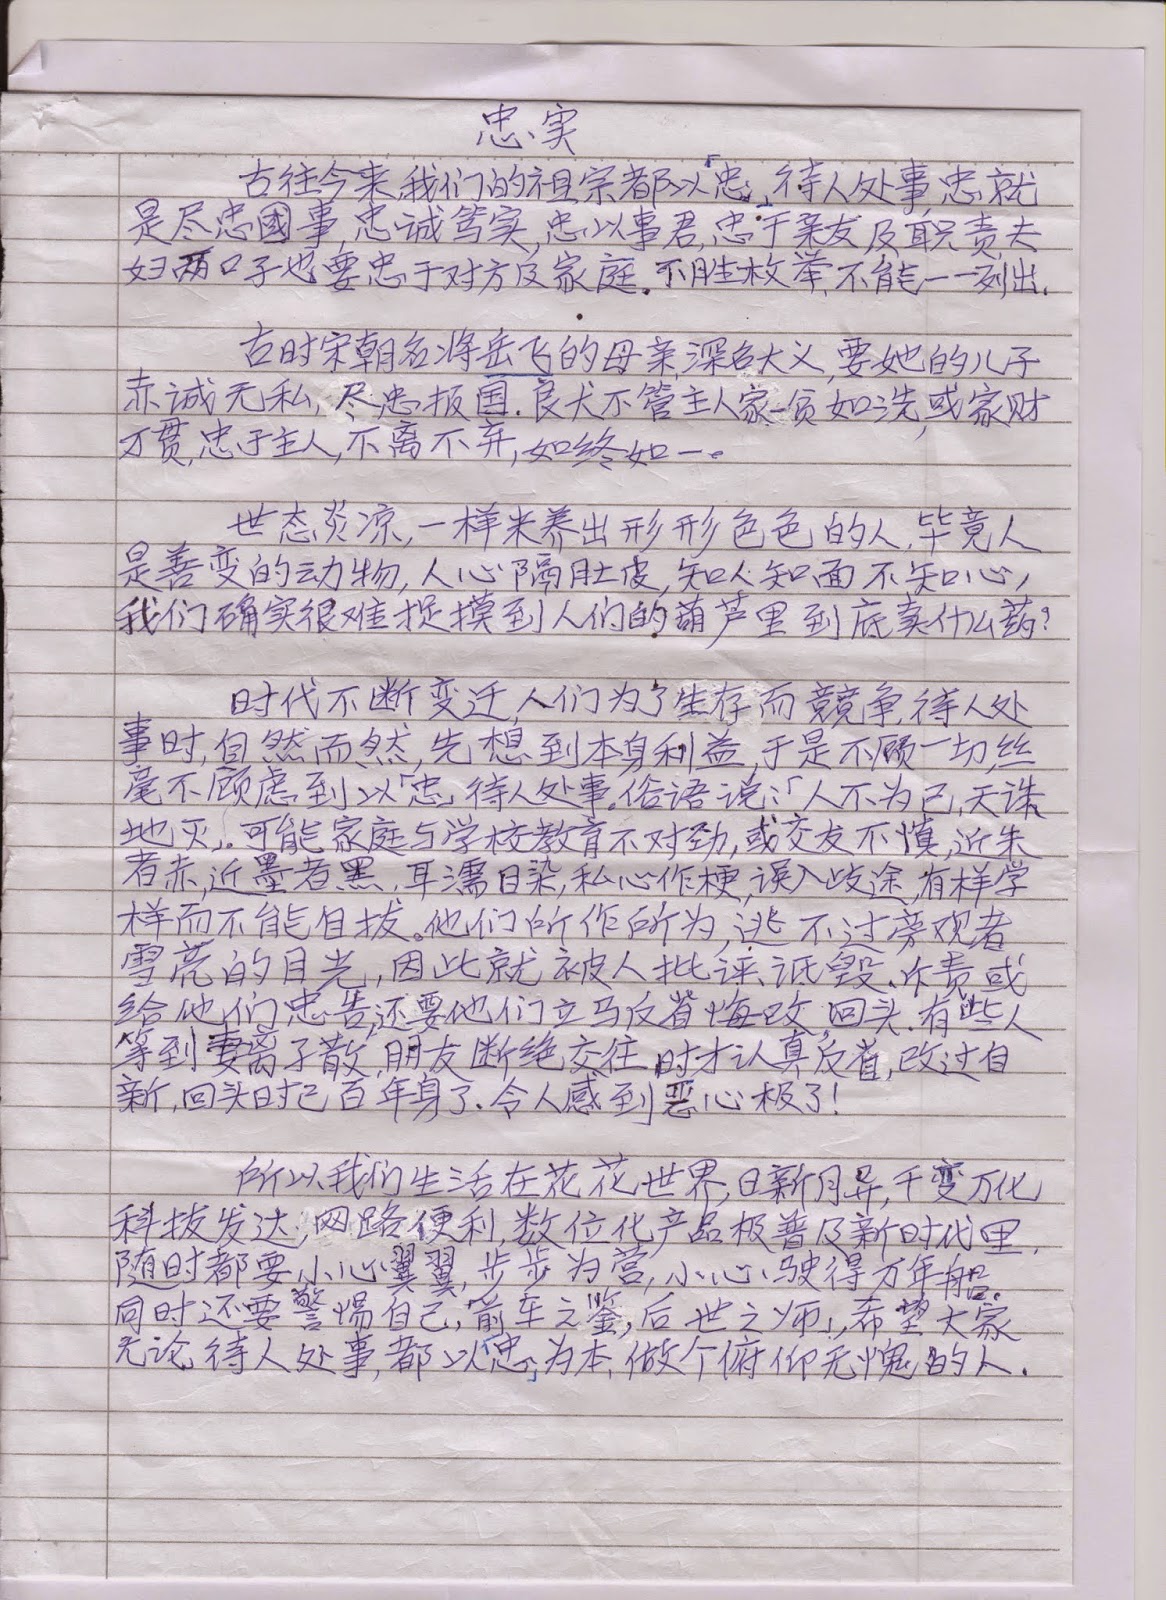 忠实
古往今来,我们的祖宗都以「忠」待人处事,忠就
是尽忠國事,忠诚笃实,忠以事君,忠于亲友及职责,夫
妇两口子也要忠于对方及家庭。不胜枚举,不能一一列出.
古时宋朝名将岳飞的母亲,深名大义,要她的儿子
赤诚无私,尽忠报国.良犬不管主人家一贫如洗,或家财
万贯,忠于主人,不离不弃,如终如一。
世态炎凉,一样米养出形形色色的人.毕竟人
是善变的动物,人心隔肚皮,知人知面不知心,
我们确实很难捉摸到人们的葫芦里到底卖什么药?
时代不断变迁,人们为了生存而競争,待人处
事时,自然而然,先想到本身利益,于是不顾一切,丝
毫不顾虑到以「忠」待人处事.俗语说:「人不为己,天诛
地灭」.可能家庭与学校教育不对劲,或交友不慎,近朱
者赤,近墨者黑,耳濡目染,私心作梗,误入歧途,有样学
样而不能自拔。他们所作所为,逃不过旁观者
雪亮的目光,因此就被人批评、诋毁、咋责或
给他们忠告,还要他们立马反省悔改,回头.有些人
等到妻离子散,朋友断绝交往,时才认真反省,改过自
新,回头时已百年身了.令人感到恶心极了!
所以我们生活在花花世界,日新月异,千变万化
科技发达,网路便利,数位化产品极普及新时代里,
随时都要小心翼翼,步步为营,小心驶得万年船。
同时还要警惕自己,「前车之鉴,后世之师」,希望大家
无论待人处事,都以「忠」为本,做个俯仰无愧的人.